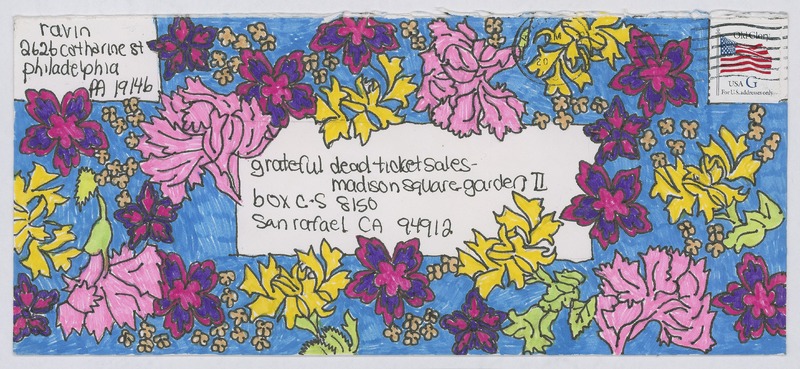 ravin
2626 catharine st
philadelphia
PA 19146
Old Glory
USA G
For U.S. addresses only
grateful dead ticket sales-
madison square garden II
box C-S 8150
San rafael CA 94912